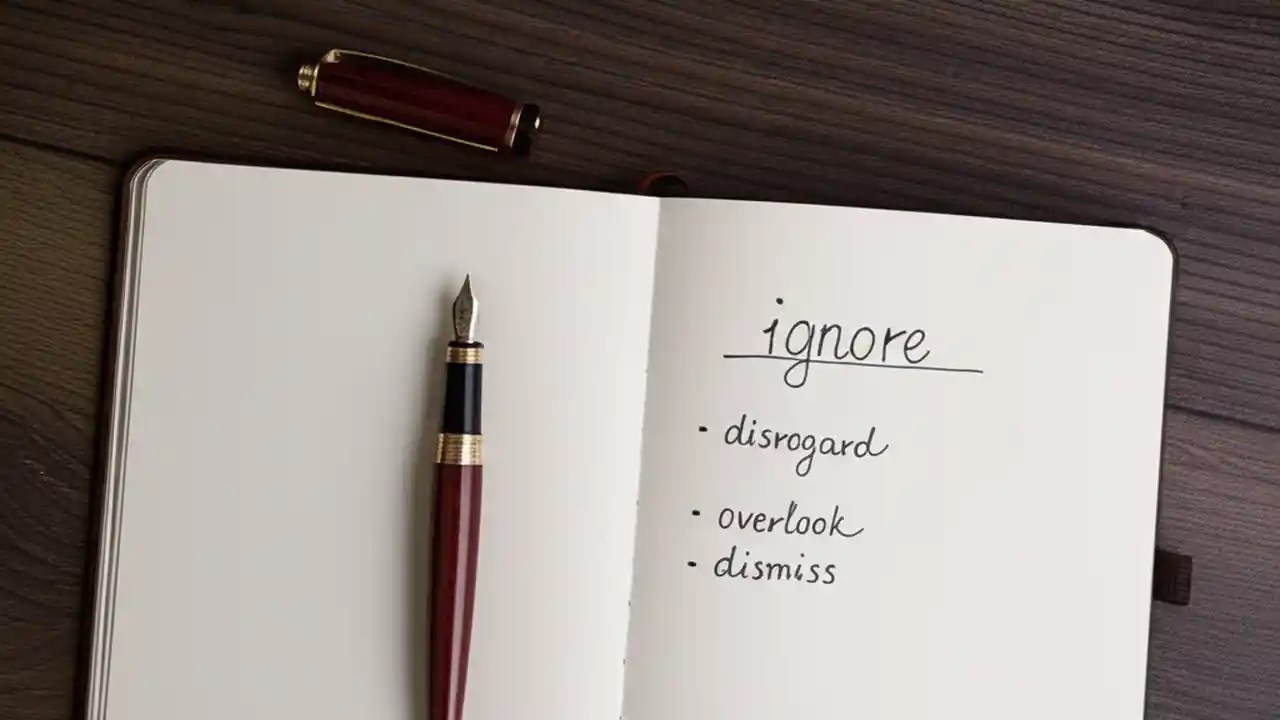 ignore
· disrogard
· overlook
· dismiss